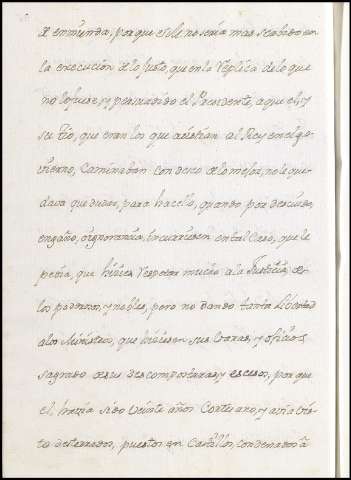 de enmienda, porque el no seria mas servido en
la execucion de lo justo, que en la replica de lo que
no lo fuese y persuadido el Presidente, a que el, y
su tio, que eran los que asistian al Rey en el Go-
vierno, Caminaban con deseo de lo mejor, no le que-
dava que dudar, para hacello, quando por descuido,
engaño, o ignorancia, incurriesen en tal Caso, que le
pedia, que hiciese respetar mucho a la Justicia, de
los poderosos, y nobles, pero no dando tanta libertad
a los Ministros, que hiciesen sus varas, y oficios,
sagrado de sus descomposturas, y escesos, porque
el havia sido veinte años Cortesano, y avia vis-
to desterrados, puestos en Castillos, condenados à